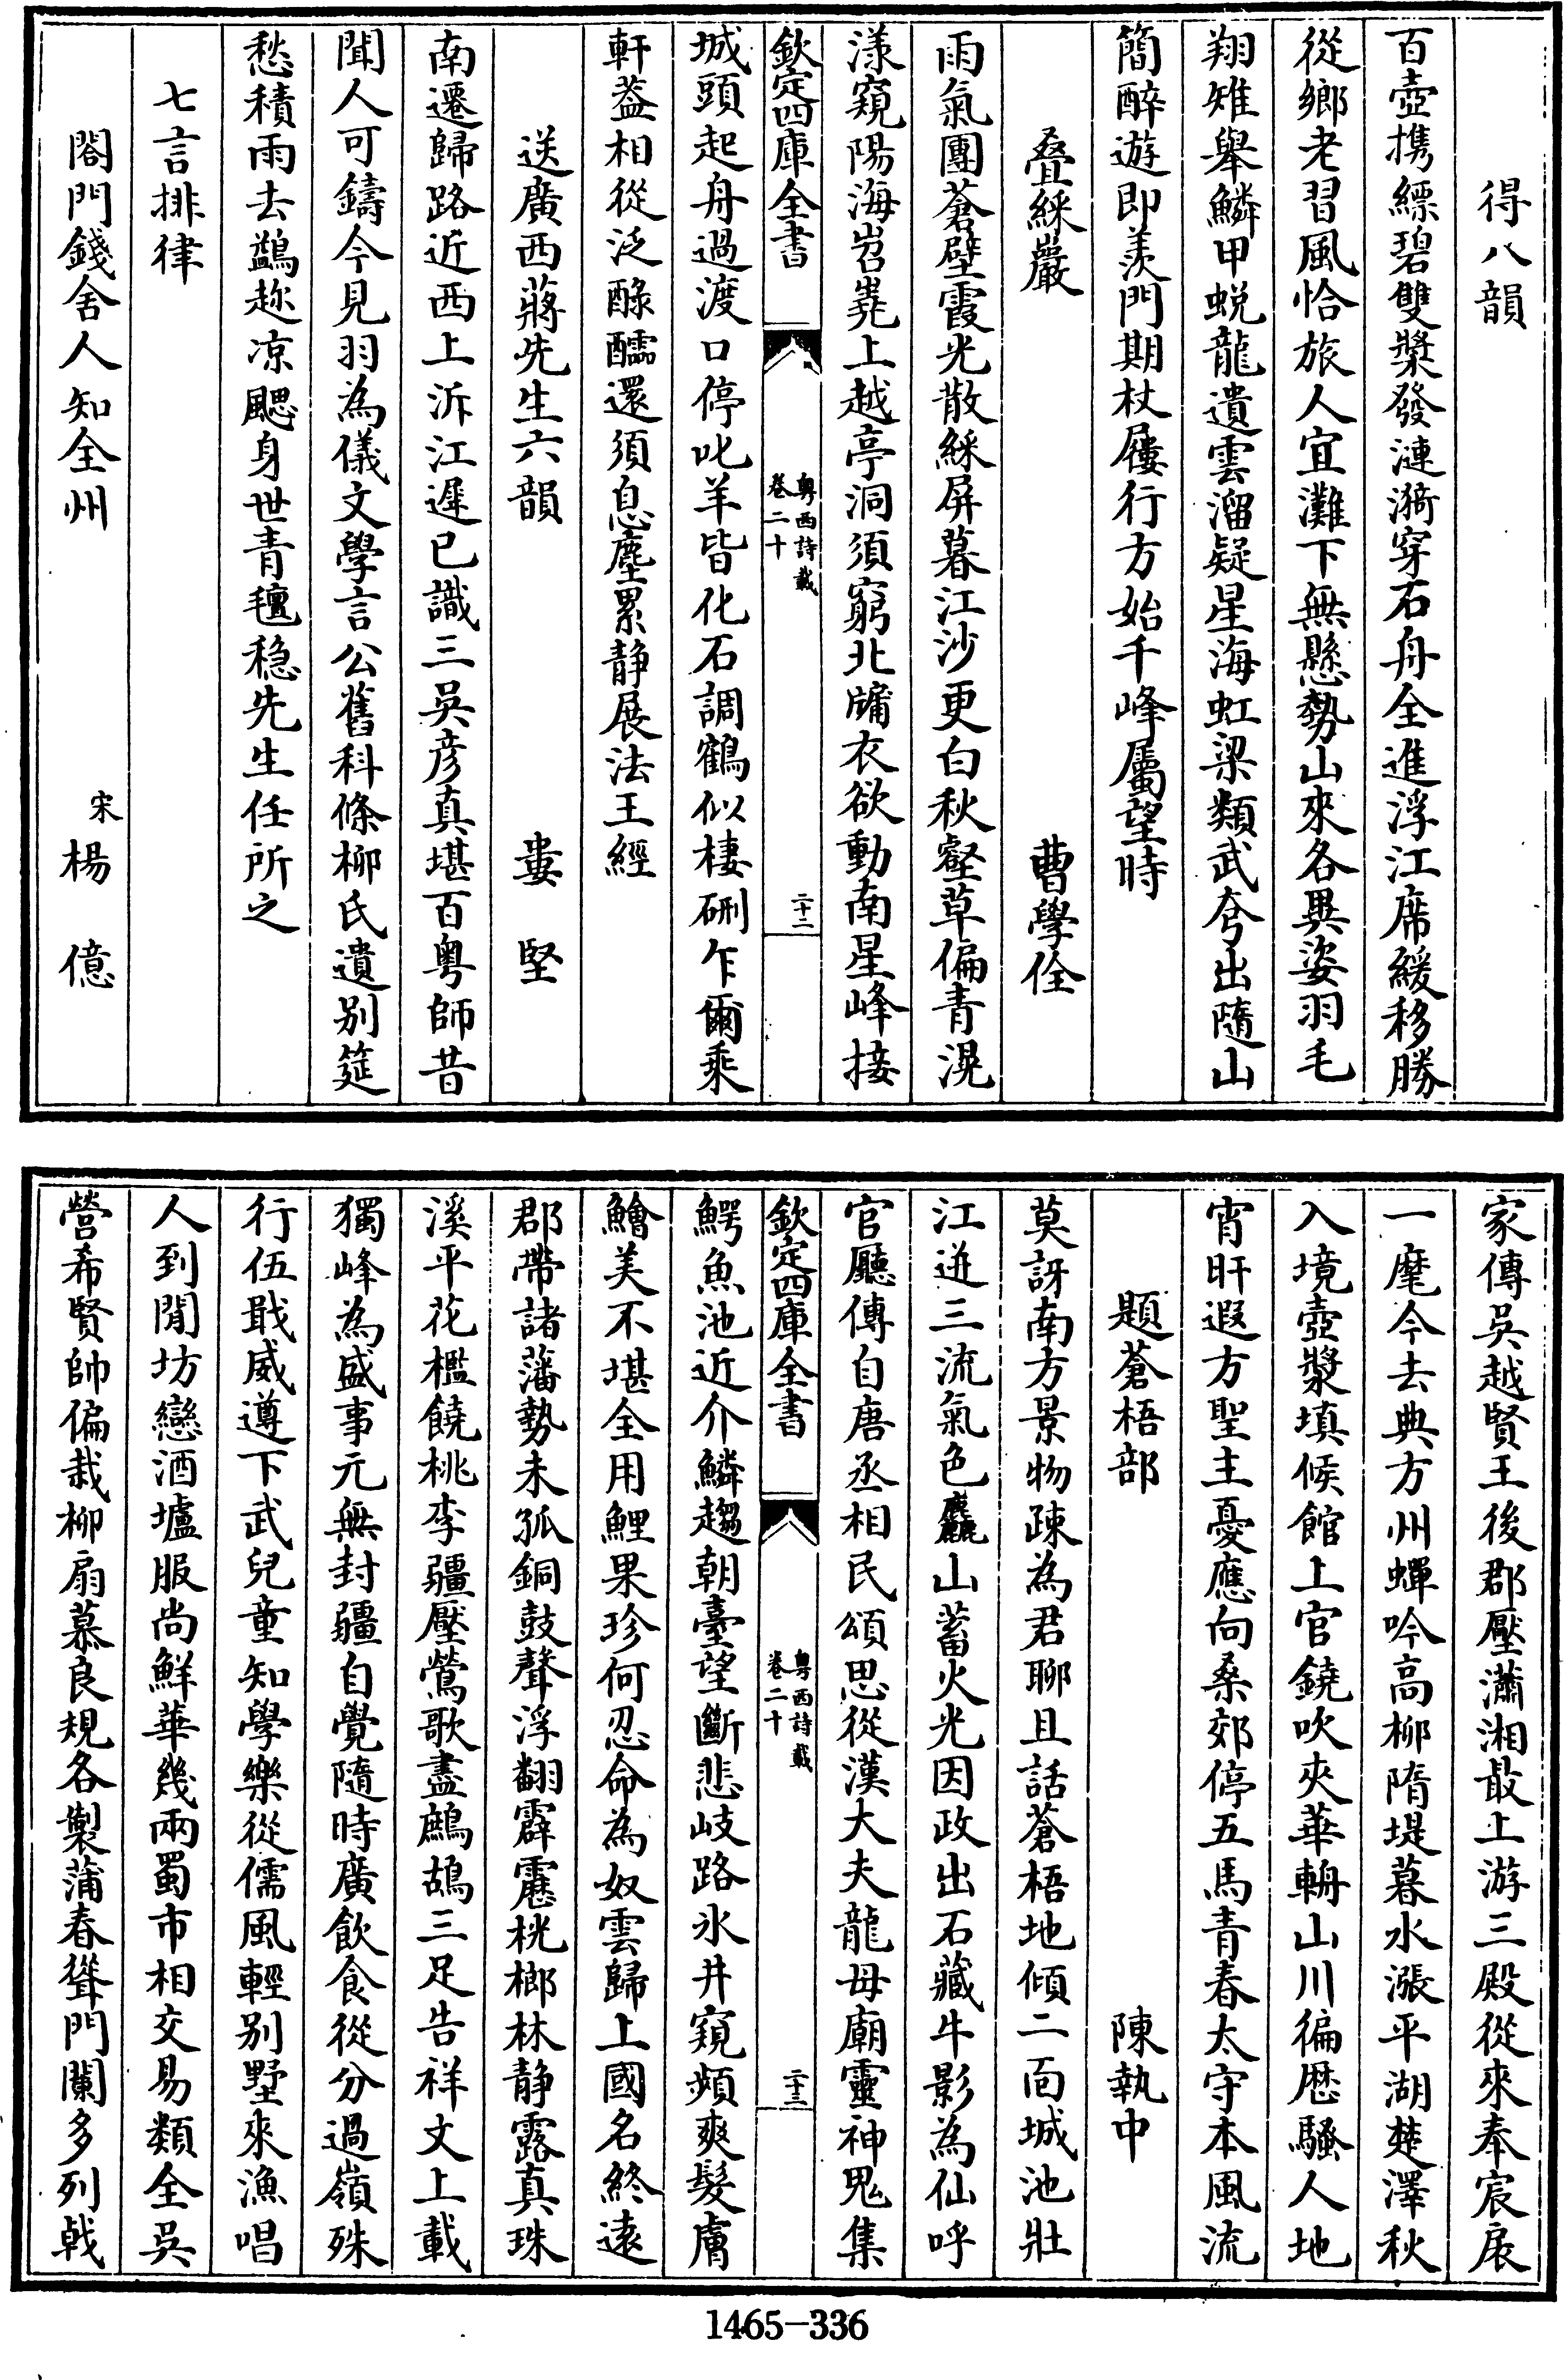 得八韻
百壺攜縹碧雙槳發漣漪穿石舟全進浮江席緩移勝
從鄉老習風恰旅人宜灘下無懸勢山來各異姿羽毛
翔雉舉鱗甲蛻龍遺雲溜疑星海虹梁類武夸出隨山
簡醉遊即羨門期杖屨行方始千峰屬望時
疊綵巖　曹學佺
雨氣團蒼壁霞光散綵屏暮江沙更白秋壑草偏青滉
漾窺陽海岧嶤上越亭洞須窮北牖衣欲動南星峰接
欽定四庫全書　粵西詩載　卷二十　二十二
城頭起舟過渡口停叱羊皆化石調鶴似棲硎乍爾乘
軒蓋相從泛醁醽還須息塵累靜展法王經
送廣西蔣先生六韻　婁堅
南遷歸路近西上泝江遲已識三吳彥真堪百粵師昔
聞人可鑄今見羽為儀文學言公舊科條柳氏遺别筵
愁積雨去鷁趂凉颸身世青氊稳先生任所之
七言排律
閤門錢舍人知全州　宋　楊億
家傳吳越賢王後郡壓瀟湘最上游三殿從來奉宸扆
一麾今去典方州蟬吟高柳隋堤暮水漲平湖楚澤秋
入境壺漿填候館上官鐃吹夾華輈山川徧歷騷人地
宵旰遐方聖主憂應向桑郊停五馬青春太守本風流
題蒼梧部　陳執中
莫訝南方景物疎為君聊且話蒼梧地傾二面城池壯
江迸三流氣色麤山蓄火光因政出石藏牛影為仙呼
官廳傳自唐丞相民頌思從漢大夫龍母廟靈神鬼集
欽定四庫全書　粵西詩載　卷二十　二十三
鰐魚池近介鱗趨朝臺望斷悲岐路氷井窺頻爽髮膚
鱠美不堪全用鯉果珍何忍命為奴雲歸上國名終遠
郡帶諸藩勢未孤銅鼓聲浮翻霹靂桄榔林靜露真珠
溪平花檻饒桃李疆壓鶯歌盡鷓鴣三足告祥文上載
獨峰為盛事元無封疆自覺隨時廣飲食從分過嶺殊
行伍戢威遵下武兒童知學樂從儒風輕别墅來漁唱
人到閒坊戀酒壚服尚鮮華幾兩蜀市相交易類全吳
營希賢帥偏栽柳扇慕良規各製蒲春聳門闌多列戟
1465-336